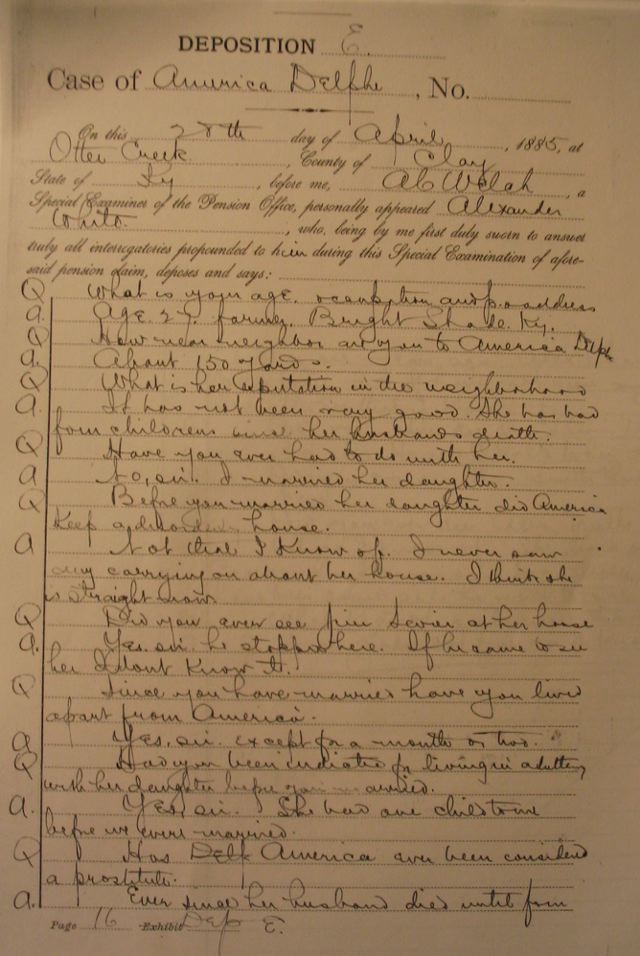 DEPOSITION E.
Case of America Delphe, No.
On this 28th day of April, 1885, at
Otter Creek, County of Clay
State of Ky, before me, A C Welch, a
Special Examiner of the Pension Office, personally appeared Alexander
White, who, being by me first duly sworn to answer
truly all interrogatories propounded to him during this Special Examination of afore-
said pension claim, deposes and says:
Q What is your age, occupation and p.o. address
a. Age 27. farmer. Bright Shade, Ky.
Q How near neighbor are you to America Delph
a. About 150 yards.
Q What is her reputation in the neighborhood
a. It has not been very good. She has had
four childrens since her husbands death.
Q Have you ever had to do with her.
a No, sir. I married her daughter.
Q Before you married her daughter did America
keep a disorderly house.
a Not that I know of. I never saw
any carrying on about her house. I think she
is straight now.
Q Did you ever see Jim Sevier at her house
a. Yes, sir. he stopped here. If he came to see
her I dont know it.
Q Since you have married have you lived
apart from America.
a Yes, sir. except for a month or two.
Q Had you been indicted for living in adultery
with her daughter before you married.
a. Yes, sir. She had one child to me
before we were married.
Q Has Delp America ever been considered
a prostitute.
a. Ever since her husband died until from
Page 16 Exhibit Dep E.